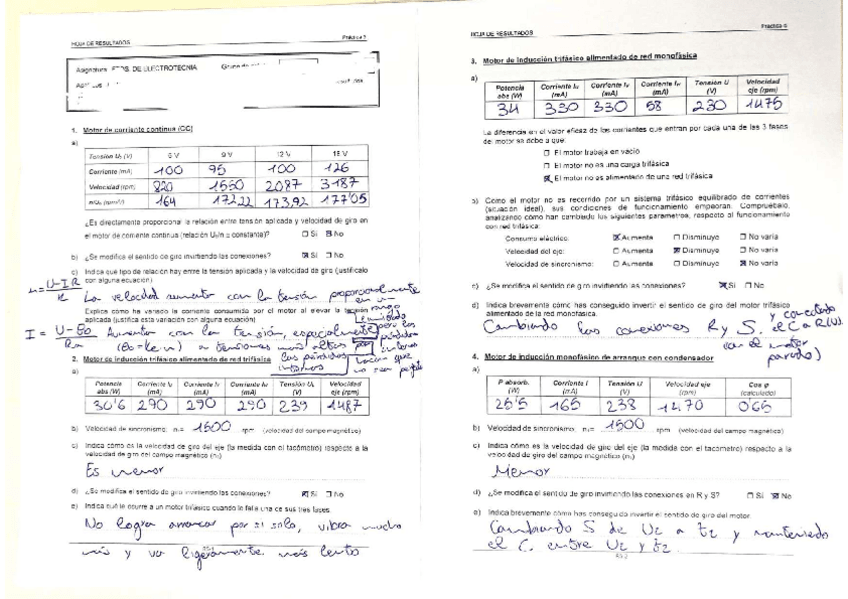 HOJA DE RESULTADOS
Práctica 5
Asignatura: DE ELECTROTECNIA
1. Motor de corriente continua (CC)
a)
Tensión U₁ (V) 6 V 9 V 12 V 15 V
Corriente (mA) 100 95 100 126
Velocidad (rpm) 820 1550 2087 3187
164 172,22 173,92 177'05
¿Es directamente proporcional la relación entre tensión aplicada y velocidad de giro en
el motor de corriente continua (relación U₁/n ≈ constante)? ☐ Sí ☒ No
b) ¿Se modifica el sentido de giro invirtiendo las conexiones? ☒ Sí ☐ No
c) Indica qué tipo de relación hay entre la tensión aplicada y la velocidad de giro (justifícalo
con alguna ecuación)
n = U-IR / K La velocidad aumenta con la tensión proporcionalmente
Explica cómo ha variado la corriente consumida por el motor al elevar la tensión
aplicada (justifica esta variación con alguna ecuación)
I = U-E0 / Ra Aumenta con la tensión, especialmente
a tensiones más altas por
las pérdidas
internas
2. Motor de inducción trifásico alimentado de red trifásica
a)
Potencia abs (W) Corriente (mA) Corriente (mA) Corriente (mA) Tensión U (V) Velocidad eje (rpm)
30'6 290 290 290 239 1487
b) Velocidad de sincronismo: n₁= 1500 rpm (velocidad del campo magnético)
c) Indica cómo es la velocidad de giro del eje (la medida con el tacómetro) respecto a la
velocidad de giro del campo magnético (n₁)
Es menor
d) ¿Se modifica el sentido de giro invirtiendo las conexiones? ☒ Sí ☐ No
e) Indica qué le ocurre a un motor trifásico cuando le falla una de sus tres fases
No logra arrancar por si solo, vibra mucho
más y va ligeramente más lento
HOJA DE RESULTADOS
Práctica 5
3. Motor de inducción trifásico alimentado de red monofásica
a)
Potencia abs (W) Corriente (mA) Corriente (mA) Corriente (mA) Tensión U (V) Velocidad eje (rpm)
34 330 330 58 230 1475
La diferencia en el valor eficaz de las corrientes que entran por cada una de las 3 fases
del motor se debe a que:
☐ El motor trabaja en vacío
☐ El motor no es una carga trifásica
☒ El motor no es alimentado de una red trifásica
b) Como el motor no es recorrido por un sistema trifásico equilibrado de corrientes
(situación ideal), sus condiciones de funcionamiento empeoran. Compruébalo,
analizando cómo han cambiado los siguientes parámetros, respecto al funcionamiento
con red trifásica:
Consumo eléctrico: ☒ Aumenta ☐ Disminuye ☐ No varía
Velocidad del eje: ☐ Aumenta ☒ Disminuye ☐ No varía
Velocidad de sincronismo: ☐ Aumenta ☐ Disminuye ☒ No varía
c) ¿Se modifica el sentido de giro invirtiendo las conexiones? ☒ Sí ☐ No
d) Indica brevemente cómo has conseguido invertir el sentido de giro del motor trifásico
alimentado de la red monofásica.
Cambiando las conexiones R y S. y conectado
el C a R(U).
(con el motor
parado)
4. Motor de inducción monofásico de arranque con condensador
a)
P absorb. (W) Corriente I (mA) Tensión U (V) Velocidad eje (rpm) Cos φ (calculado)
25'5 165 238 1470 0'65
b) Velocidad de sincronismo: n₁= 1500 rpm (velocidad del campo magnético)
c) Indica cómo es la velocidad de giro del eje (la medida con el tacómetro) respecto a la
velocidad de giro del campo magnético (n₁)
Menor
d) ¿Se modifica el sentido de giro invirtiendo las conexiones en R y S? ☐ Sí ☒ No
e) Indica brevemente cómo has conseguido invertir el sentido de giro del motor
Cambiando S de U2 a Z2 y manteniendo
el C. entre U2 y Z2.